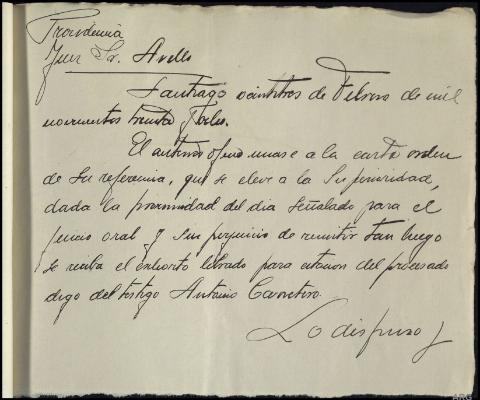 Providencia
Juez Sr. Avello
Santiago veintitres de Febrero de mil
novecientos treinta y
El anterior oficio unase a la carta orden
de su referencia, que se eleve a la Superioridad,
dada la proximidad del dia señalado para el
juicio oral y sin perjuicio de remitir tan luego
se reciba el exhorto librado para citacion del procesado
digo del testigo Antonio Carretero.
Lo dispuso y